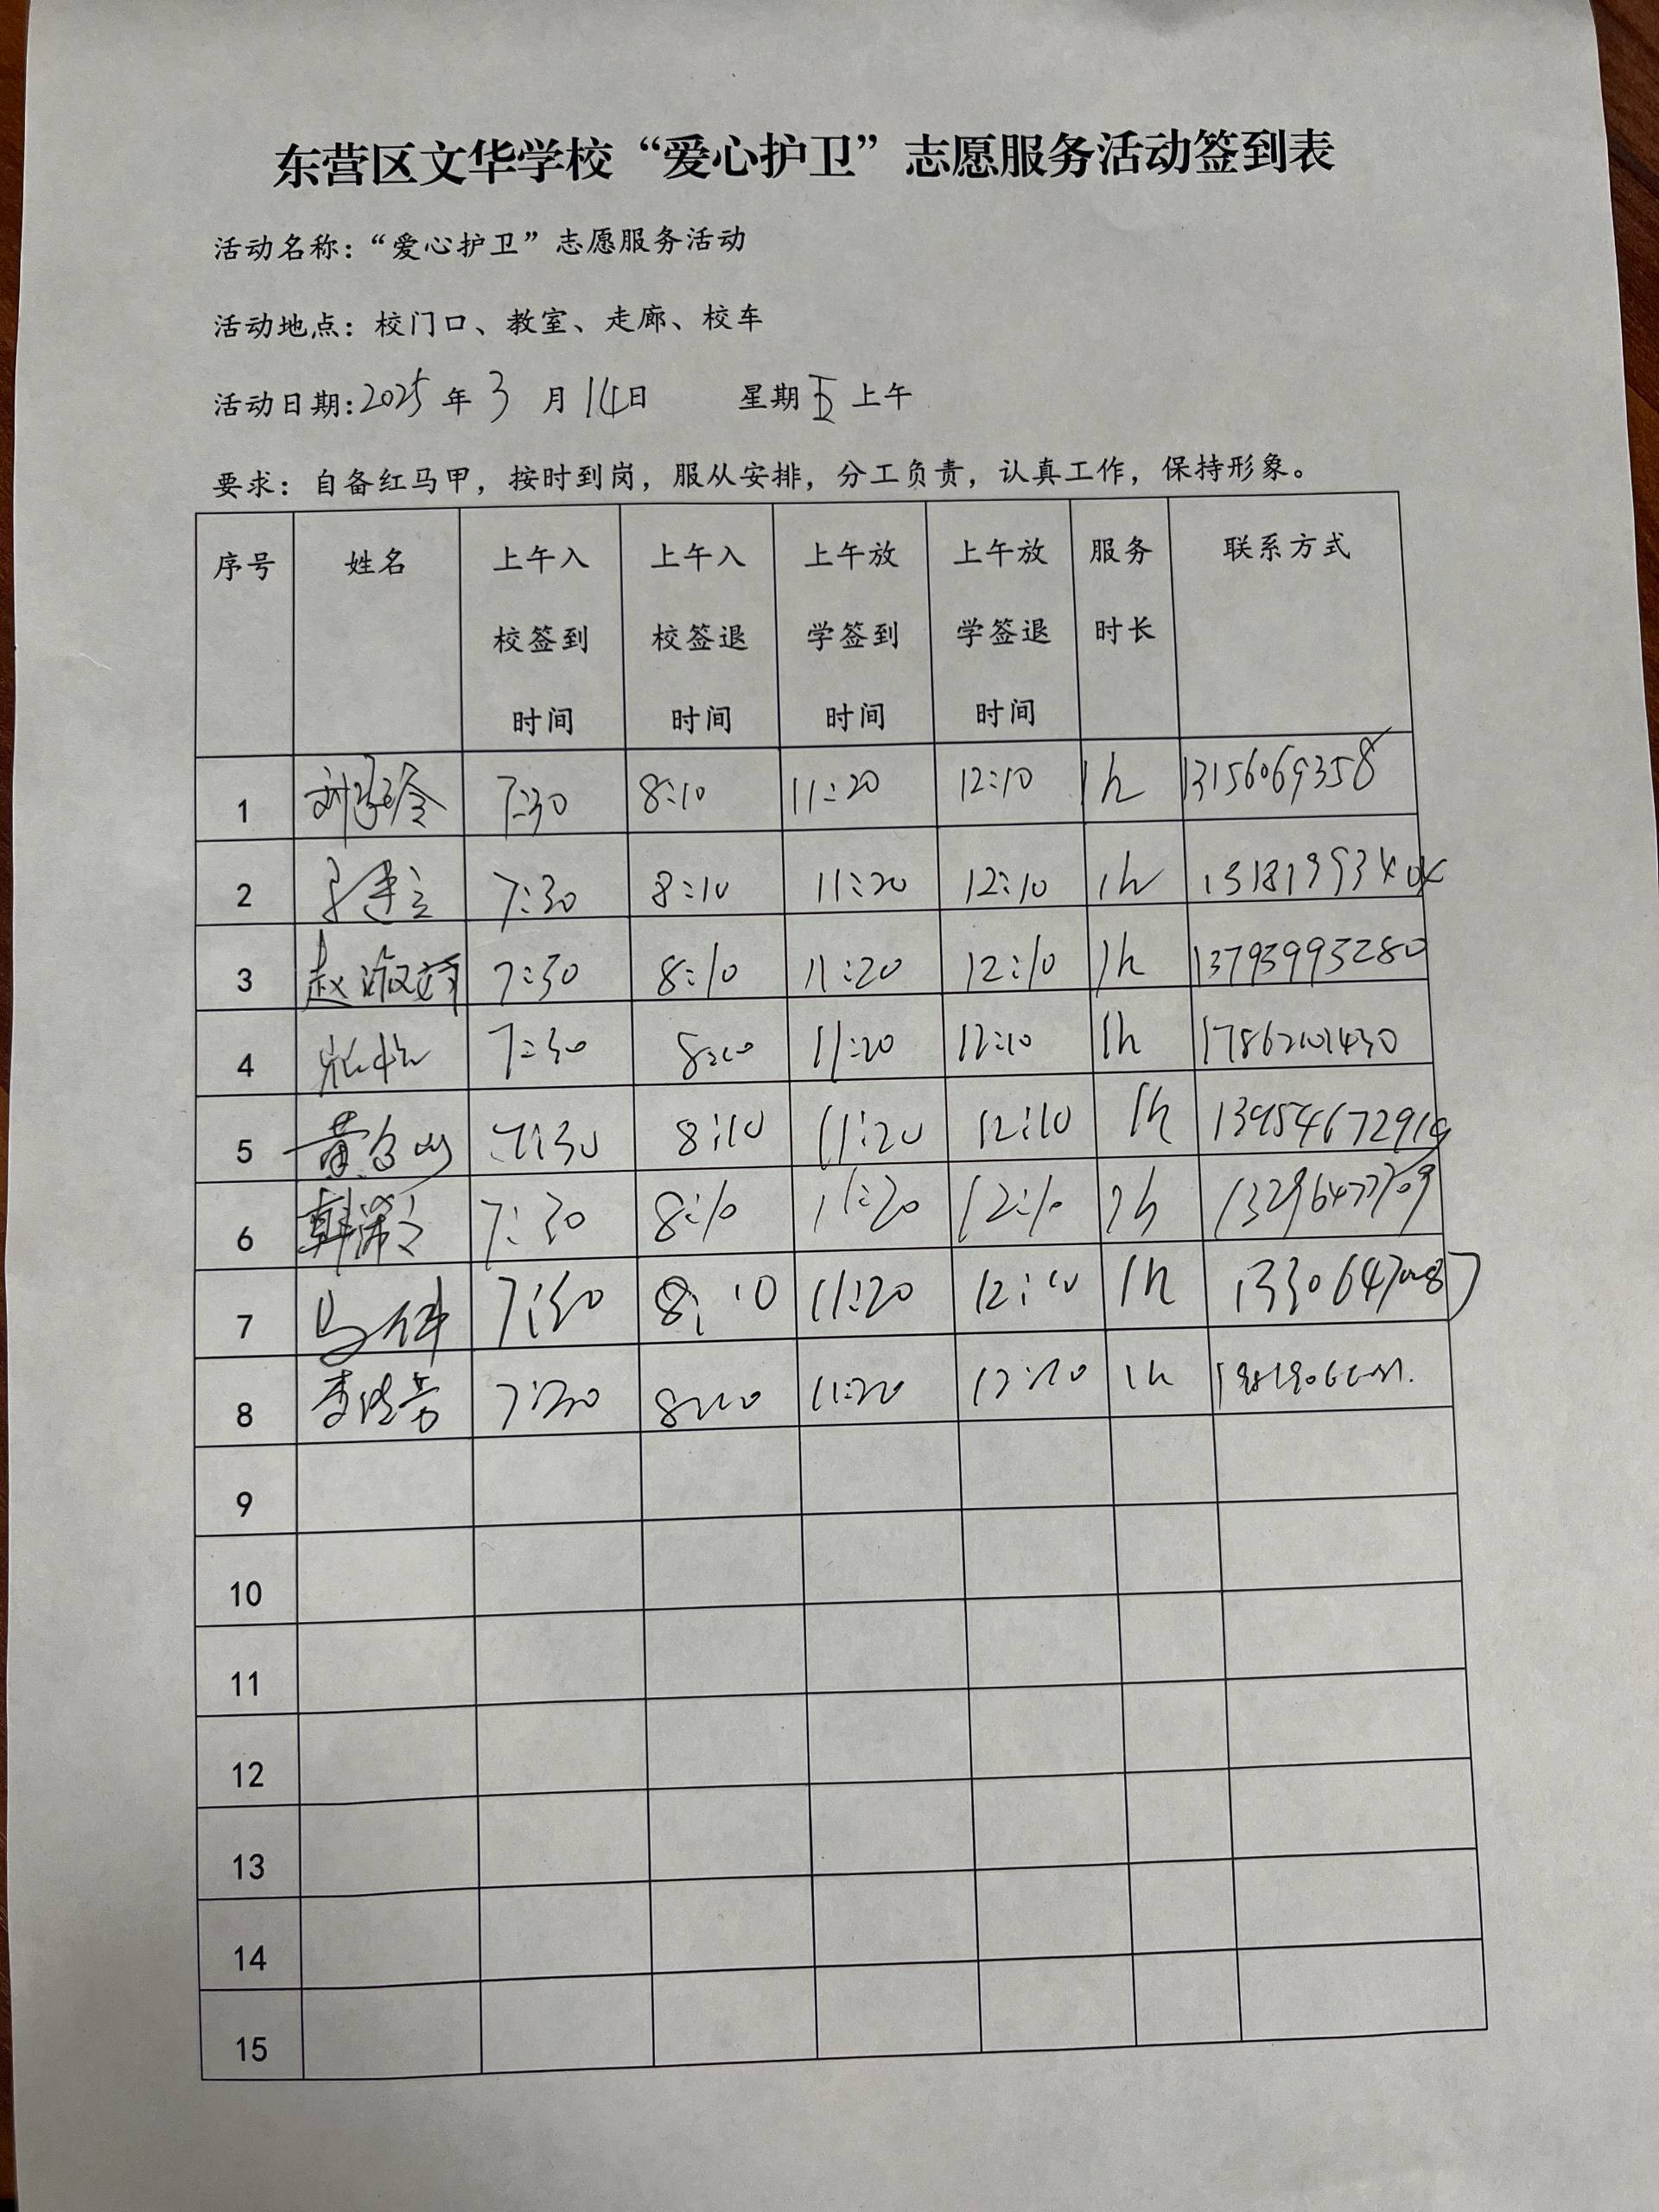 东营区文华学校“爱心护卫”志愿服务活动签到表
活动名称：“爱心护卫”志愿服务活动
活动地点：校门口、教室、走廊、校车
活动日期：2025 年 3 月 14日 星期五 上午
要求：自备红马甲，按时到岗，服从安排，分工负责，认真工作，保持形象。
序号 姓名 上午入校签到时间 上午入校签退时间 上午放学签到时间 上午放学签退时间 服务时长 联系方式
1 7:30 8:10 11:20 12:10 1h 13156069358
2 7:30 8:10 11:20 12:10 1h
3 赵淑文 7:30 8:10 11:20 12:10 1h 13793995280
4 7:30 8:10 11:20 12:10 1h
5 7:30 8:10 11:20 12:10 1h
6 7:30 8:10 11:20 12:10 1h
7 7:30 8:10 11:20 12:10 1h
8 7:30 8:10 11:20 12:10 1h
9
10
11
12
13
14
15